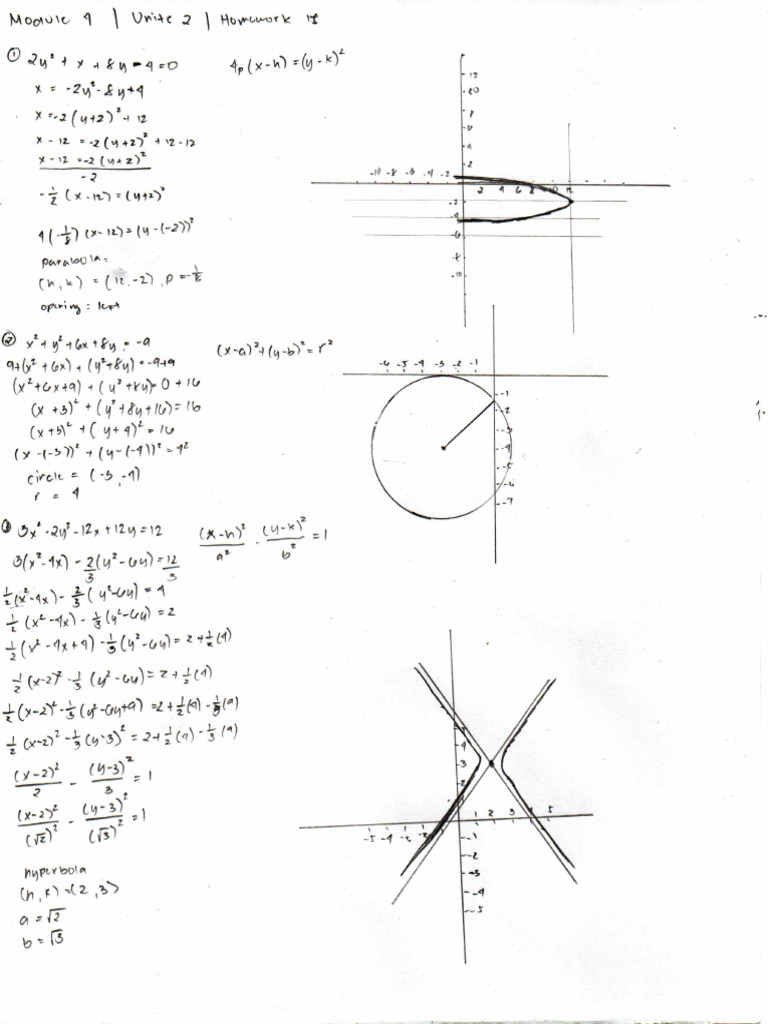 Module 9 | Unite 2 | Homework 18
① 2y² + x + 8y - 4 = 0
4p (x-h) = (y-k)²
x = -2y² - 8y + 4
x = -2 (y+2)² + 12
x - 12 = -2 (y+2)² + 12 - 12
x - 12 = -2 (y+2)²
-2
-½ (x-12) = (y+2)²
4(-⅛) (x-12) = (y-(-2))²
parabola:
(h, k) = (12, -2), p = -⅛
opening: left
-10 -8 -6 -4 -2
2 4 6 8 10 12
12
10
8
6
4
2
-2
-4
-6
-8
-10
② x² + y² + 6x + 8y = -9
(x-a)² + (y-b)² = r²
9 + (x² + 6x) + (y² + 8y) = -9 + 9
(x² + 6x + 9) + (y² + 8y) = 0 + 16
(x + 3)² + (y² + 8y + 16) = 16
(x + 3)² + (y + 4)² = 16
(x - (-3))² + (y - (-4))² = 4²
circle = (-3, -4)
r = 4
-6 -5 -4 -3 -2 -1
-1
-2
-3
-4
-5
-6
-7
③ 3x² - 2y² - 12x + 12y = 12
(x-h)²/a² - (y-k)²/b² = 1
3(x² - 4x) - 2/3 (y² - 6y) = 12/3
½(x² - 4x) - 2/3 (y² - 6y) = 4
½ (x² - 4x) - ⅓ (y² - 6y) = 2
½ (x² - 4x + 4) - ⅓ (y² - 6y) = 2 + ½ (4)
½ (x-2)² - ⅓ (y² - 6y) = 2 + ½ (4)
½ (x-2)² - ⅓ (y² - 6y + 9) = 2 + ½ (4) - ⅓ (9)
½ (x-2)² - ⅓ (y-3)² = 2 + ½ (4) - ⅓ (9)
(x-2)²/2 - (y-3)²/3 = 1
(x-2)²/(√2)² - (y-3)²/(√3)² = 1
hyperbola
(h, k) = (2, 3)
a = √2
b = √3
4
3
2
-5 -4 -3 -2 -1
1 2 3 4 5
-1
-2
-3
-4
-5